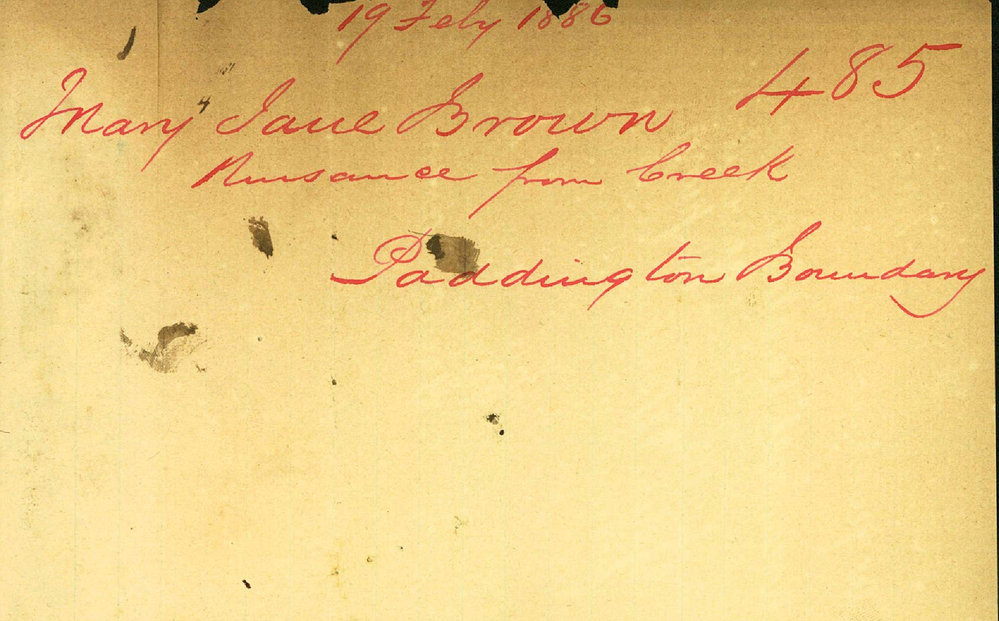 19 Feby 1886
485
Mary Jane Brown
Nuisance from Creek
Paddington Boundary